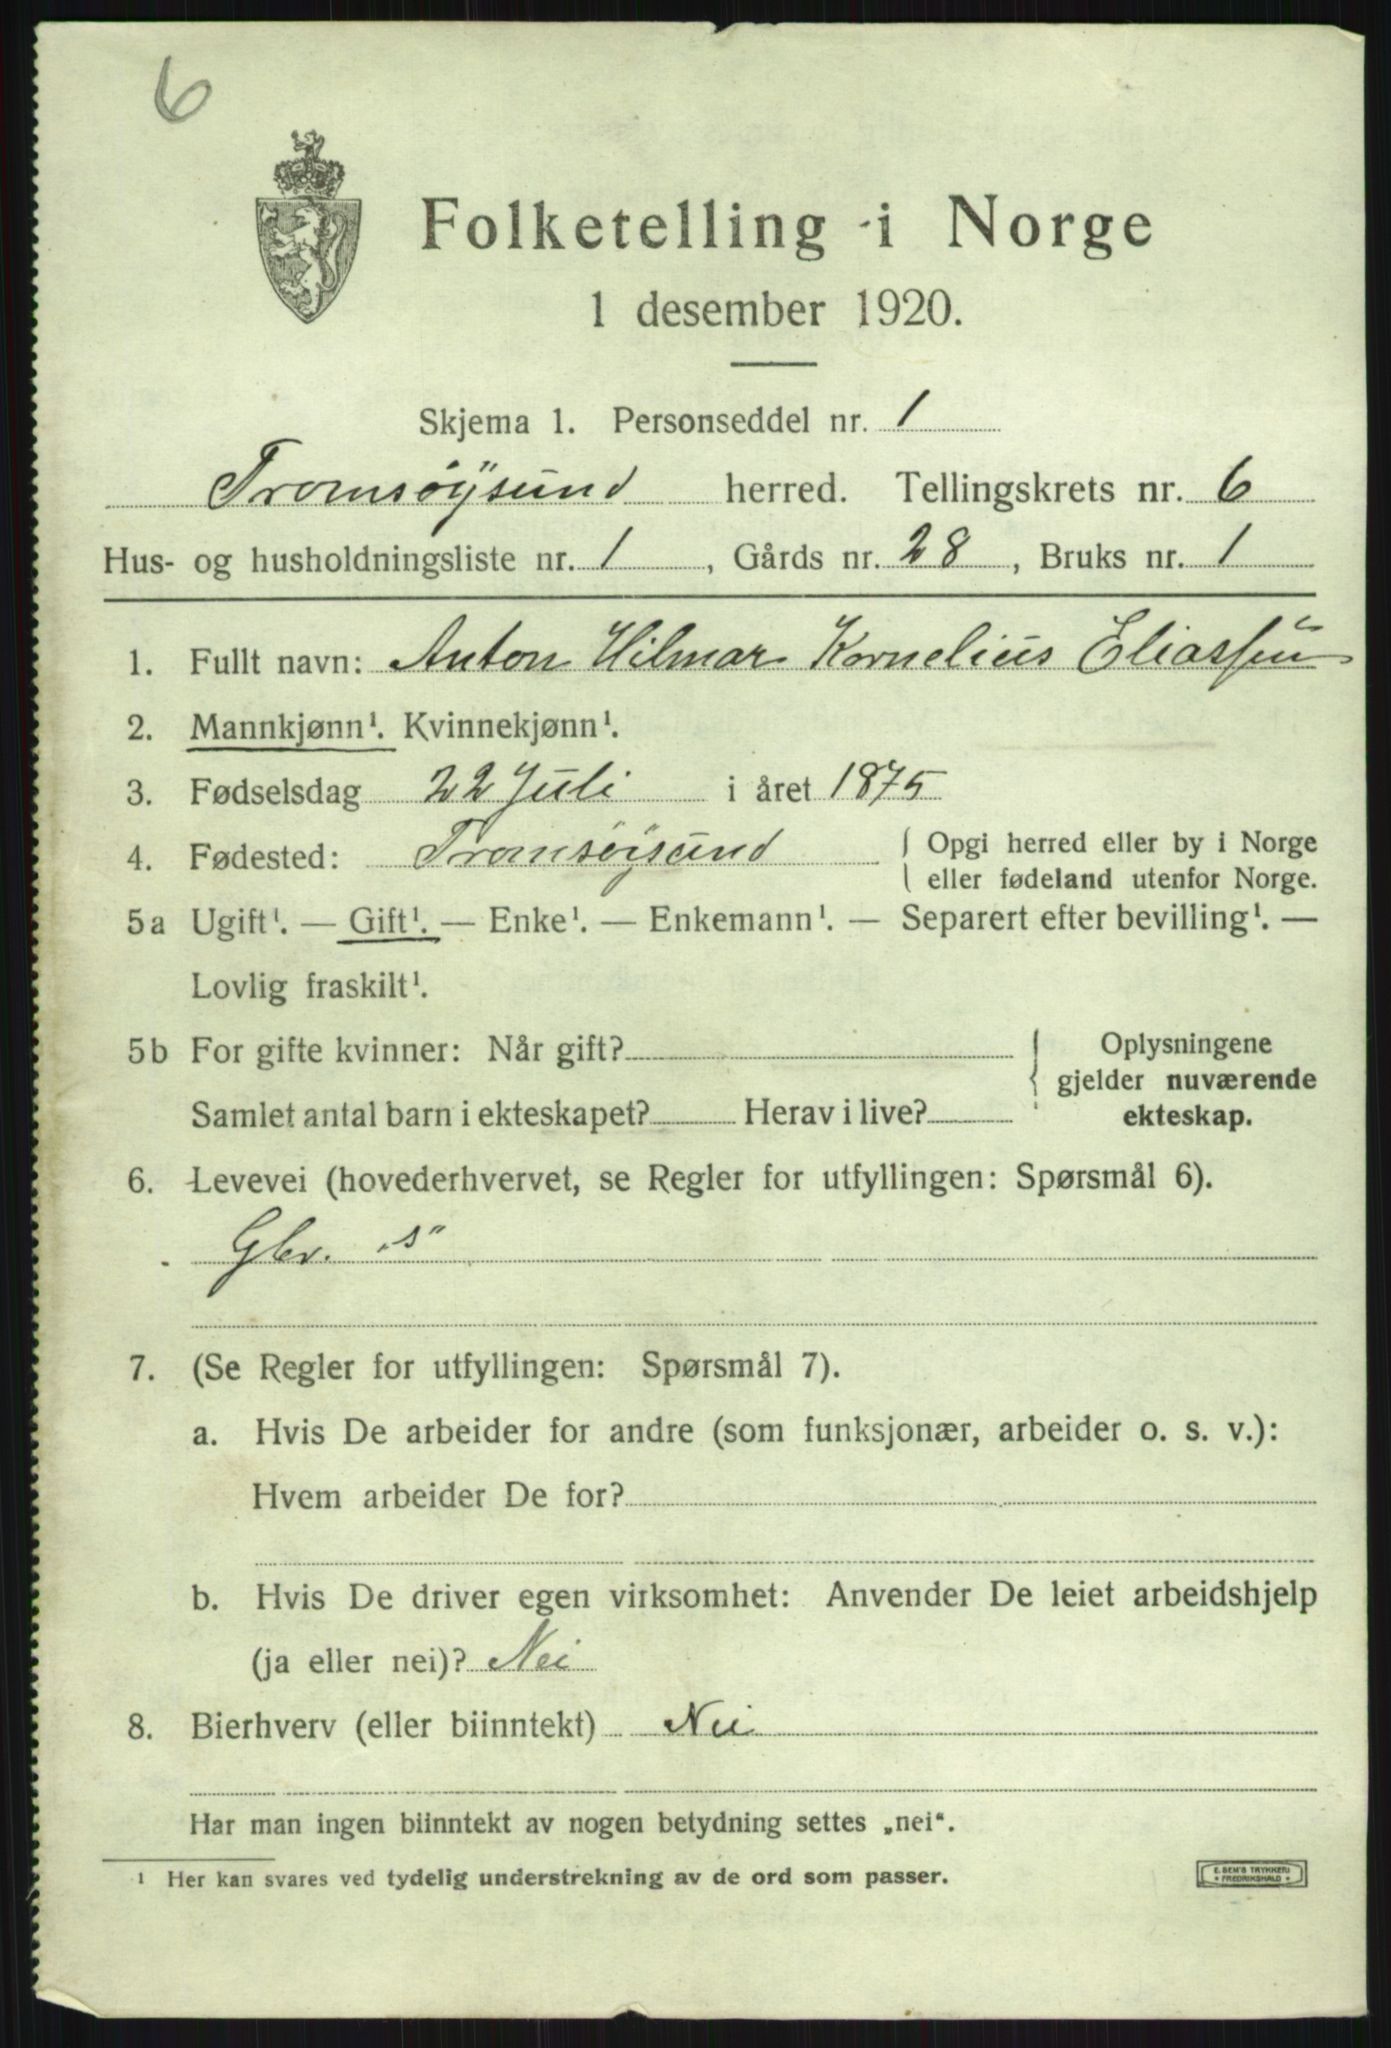 6
Folketelling i Norge
1 desember 1920.
Skjema 1. Personseddel nr. 1
Tromsøysund herred. Tellingskrets nr. 6
Hus- og husholdningsliste nr. 1, Gårds nr. 28, Bruks nr. 1
1. Fullt navn: Anton Hilmar Kornelius Eliassen
2. Mannkjønn¹. Kvinnekjønn¹.
3. Fødselsdag 22 Juli i året 1875
4. Fødested: Tromsøysund { Opgi herred eller by i Norge
eller fødeland utenfor Norge.
5a Ugift¹. — Gift¹. — Enke¹. — Enkemann¹. — Separert efter bevilling¹. —
Lovlig fraskilt¹.
5b For gifte kvinner: Når gift? { Oplysningene
gjelder nuværende
Samlet antal barn i ekteskapet? Herav i live? ekteskap.
6. Levevei (hovederhvervet, se Regler for utfyllingen: Spørsmål 6).
Gbr. „s"
7. (Se Regler for utfyllingen: Spørsmål 7).
a. Hvis De arbeider for andre (som funksjonær, arbeider o. s. v.):
Hvem arbeider De for?
b. Hvis De driver egen virksomhet: Anvender De leiet arbeidshjelp
(ja eller nei)? Nei
8. Bierhverv (eller biinntekt) Nei
Har man ingen biinntekt av nogen betydning settes „nei“.
¹ Her kan svares ved tydelig understrekning av de ord som passer.
E. SEM'S TRYKKERI
* FREDRIKSHALD *